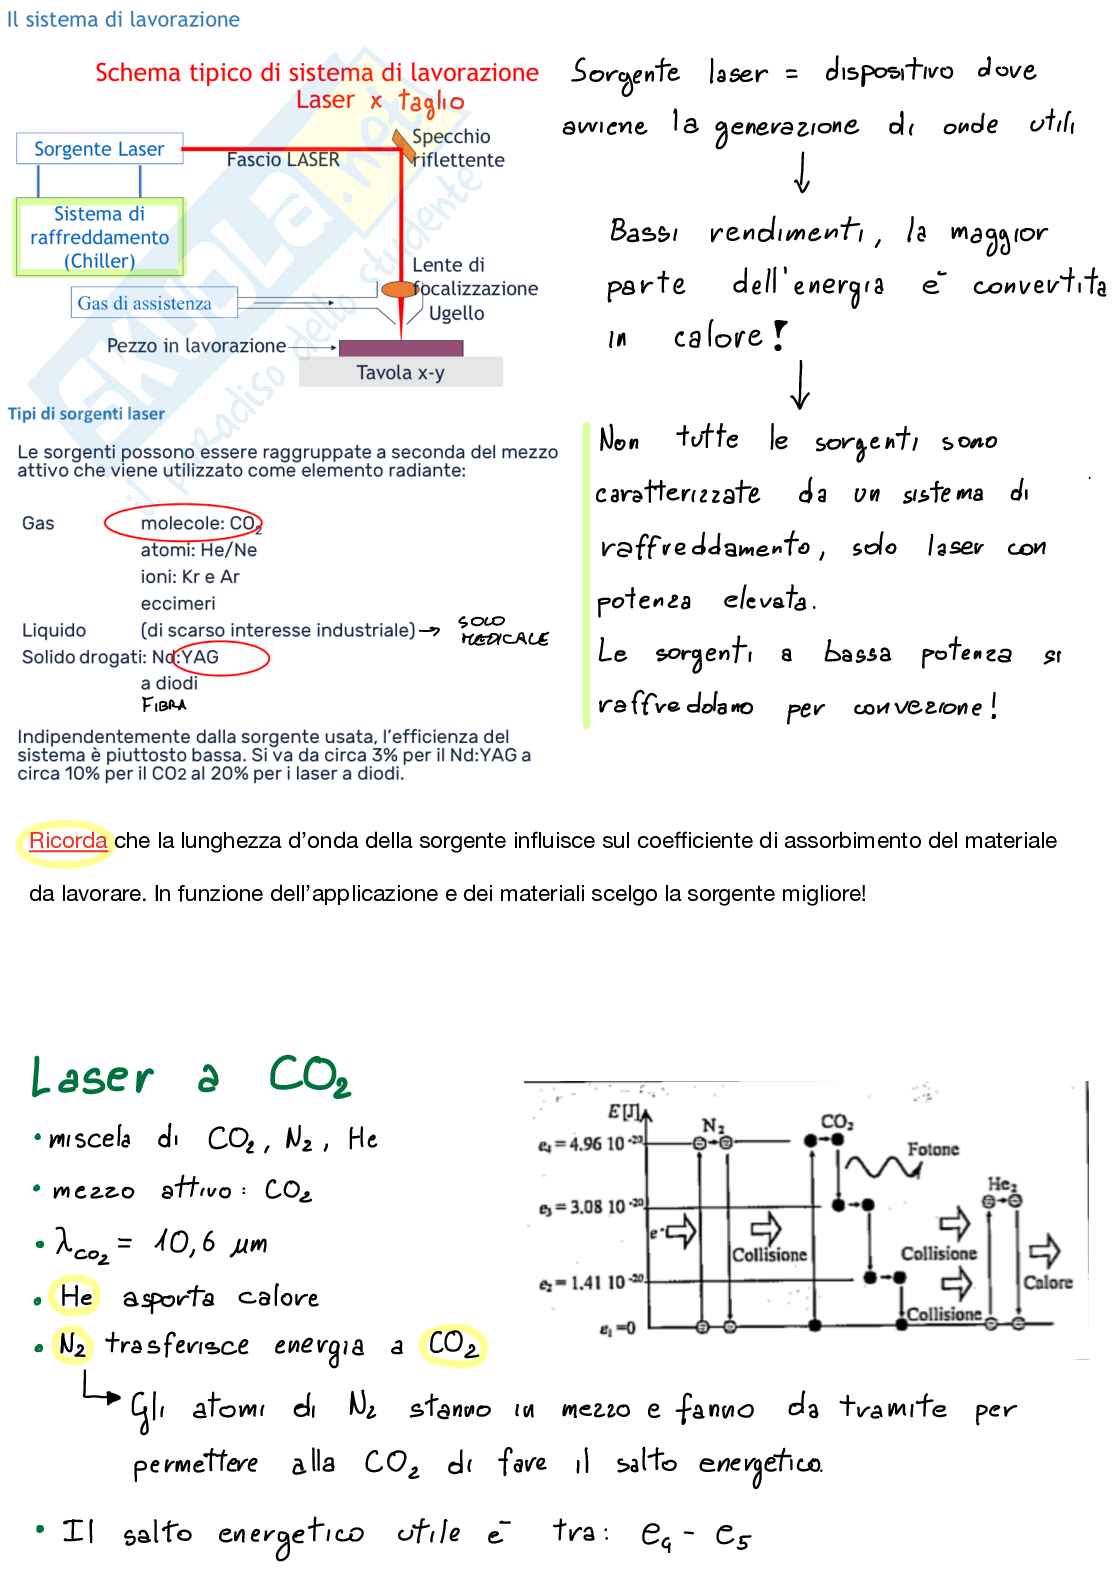 Il sistema di lavorazione
Schema tipico di sistema di lavorazione
Laser x taglio
Sorgente Laser
Fascio LASER
Specchio
riflettente
Sistema di
raffreddamento
(Chiller)
Lente di
focalizzazione
Ugello
Gas di assistenza
Pezzo in lavorazione
Tavola x-y
SKUOLA.net
il paradiso dello studente
Sorgente laser = dispositivo dove
avviene la generazione di onde utili
Bassi rendimenti, la maggior
parte dell'energia è convertita
in calore!
Non tutte le sorgenti sono
caratterizzate da un sistema di
raffreddamento, solo laser con
potenza elevata.
Le sorgenti a bassa potenza si
raffreddano per convezione!
Tipi di sorgenti laser
Le sorgenti possono essere raggruppate a seconda del mezzo
attivo che viene utilizzato come elemento radiante:
Gas molecole: CO2
atomi: He/Ne
ioni: Kr e Ar
eccimeri
Liquido (di scarso interesse industriale) → SOLO
MEDICALE
Solido drogati: Nd:YAG
a diodi
FIBRA
Indipendentemente dalla sorgente usata, l'efficienza del
sistema è piuttosto bassa. Si va da circa 3% per il Nd:YAG a
circa 10% per il CO2 al 20% per i laser a diodi.
Ricorda che la lunghezza d'onda della sorgente influisce sul coefficiente di assorbimento del materiale
da lavorare. In funzione dell'applicazione e dei materiali scelgo la sorgente migliore!
Laser a CO2
• miscela di CO2, N2, He
• mezzo attivo: CO2
• λCO2 = 10,6 μm
• He asporta calore
• N2 trasferisce energia a CO2
Gli atomi di N2 stanno in mezzo e fanno da tramite per
permettere alla CO2 di fare il salto energetico.
• Il salto energetico utile è tra: e4 - e5
E [J]
N2
CO2
e4 = 4.96 10 -20
Fotone
He2
e3 = 3.08 10 -20
e-
Collisione
Collisione
Calore
e2 = 1.41 10 -20
Collisione
e1 = 0